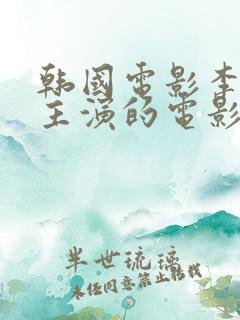 韩國電影李
主演的電影
半世琉璃
未经同意禁止转载